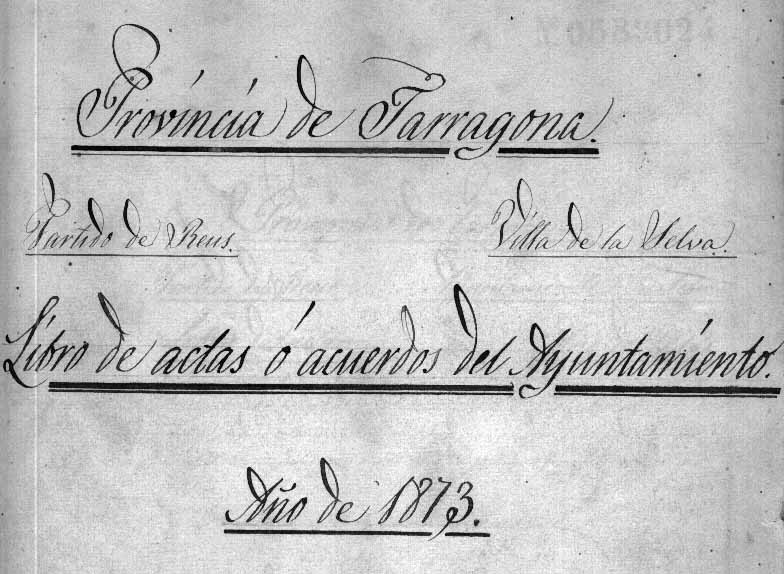 Província de Tarragona.
Partido de Reus. Villa de la Selva.
Libro de actas ó acuerdos del Ayuntamiento.
Año de 1873.